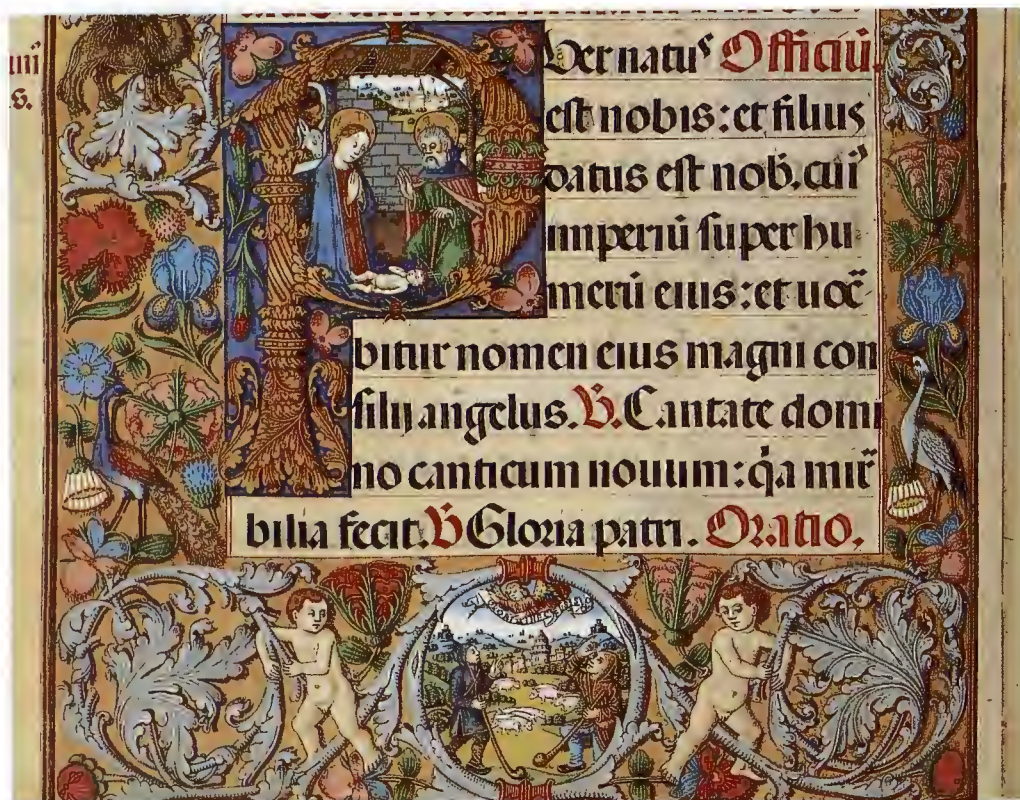 uer natus Officiū.
est nobis: et filius
datus est nob̄. cui᷒
imperiū super hu
merū eius: et uoc̄
bitur nomen eius magni con
silij angelus. V̄. Cantate domi
no canticum nouum: q̄a mir̄
bilia fecit. V̄ Gloria patri. Oratio.